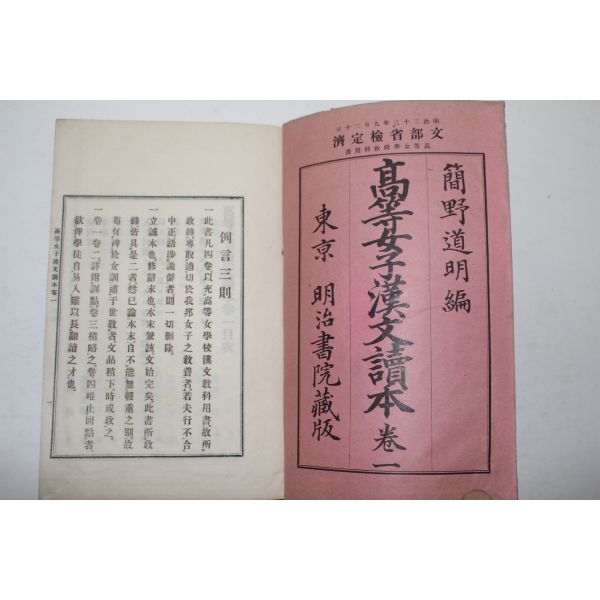 明治三十三年九月二十日
文部省檢定濟
高等女學校教科用書
簡野道明編
高等女子漢文讀本 卷一
東京 明治書院藏版
例言三則
一此書凡四卷以充高等女學校漢文教科用書故所
收錄專取適切於我邦女子之教養者若夫行不合
中正語涉詭僻者則一切刪除
一立誠本也修辭末也本末兼該文始完矣此書所收
錄皆具是二者然已論本末自不能無輕重之別故
苟有裨於女訓補于世教者文品稍下時或收之
一卷一卷二詳附訓點卷三稍略之卷四唯止回點者
欲俾學徒自易入難以長翻讀之才也
高等女子漢文讀本卷一
一